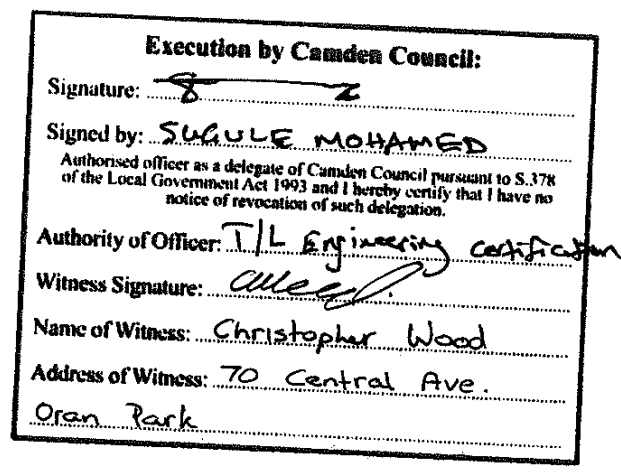 Execution by Camden Council:
Signature:
Signed by: SUGULE MOHAMED
Authorised officer as a delegate of Camden Council pursuant to S.378
of the Local Government Act 1993 and I hereby certify that I have no
notice of revocation of such delegation.
Authority of Officer: T/L Engineering certification
Witness Signature:
Name of Witness: Christopher Wood
Address of Witness: 70 Central Ave.
Oran Park